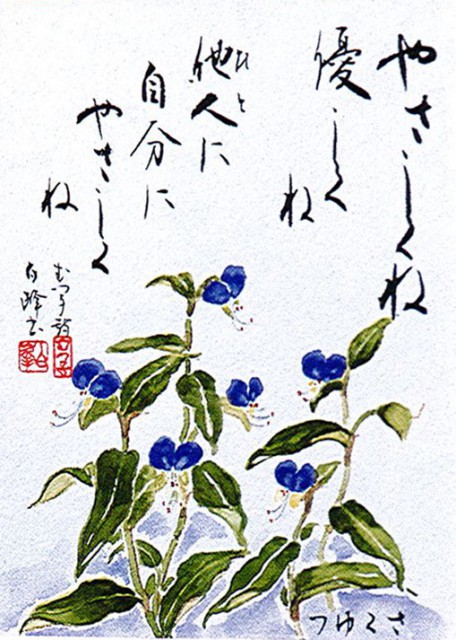 やさしくね
優しく
ね
他人に
ひと
自分に
やさしく
ね
むつ子詩
白峰書
つゆくさ